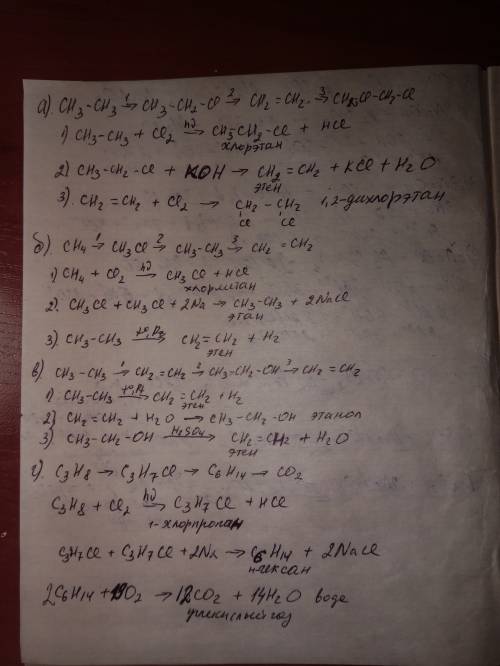 а) CH3-CH3 →1 CH3-CH2-Cl →2 CH2=CH2 →3 CH2Cl-CH2-Cl
1) CH3-CH3 + Cl2 →hν CH3CH2-Cl + HCl
хлорэтан
2) CH3-CH2-Cl + KOH → CH2=CH2 + KCl + H2O
этен
3) CH2=CH2 + Cl2 → CH2-CH2 1,2-дихлорэтан
Cl Cl
б) CH4 →1 CH3Cl →2 CH3-CH3 →3 CH2=CH2
1) CH4 + Cl2 →hν CH3Cl + HCl
хлорметан
2. CH3Cl + CH3Cl + 2Na → CH3-CH3 + 2NaCl
этан
3) CH3-CH3 →t°,Pt CH2=CH2 + H2
этен
в) CH3-CH3 →1 CH2=CH2 →2 CH3-CH2-OH →3 CH2=CH2
1) CH3-CH3 →t°,Pt CH2=CH2 + H2
этен
2) CH2=CH2 + H2O → CH3-CH2-OH этанол
3) CH3-CH2-OH →H2SO4 CH2=CH2 + H2O
этен
г) C3H8 → C3H7Cl → C6H14 → CO2
C3H8 + Cl2 →hν C3H7Cl + HCl
1-хлорпропан
C3H7Cl + C3H7Cl + 2Na → C6H14 + 2NaCl
н-гексан
2C6H14 + 19O2 → 12CO2 + 14H2O вода
углекислый газ